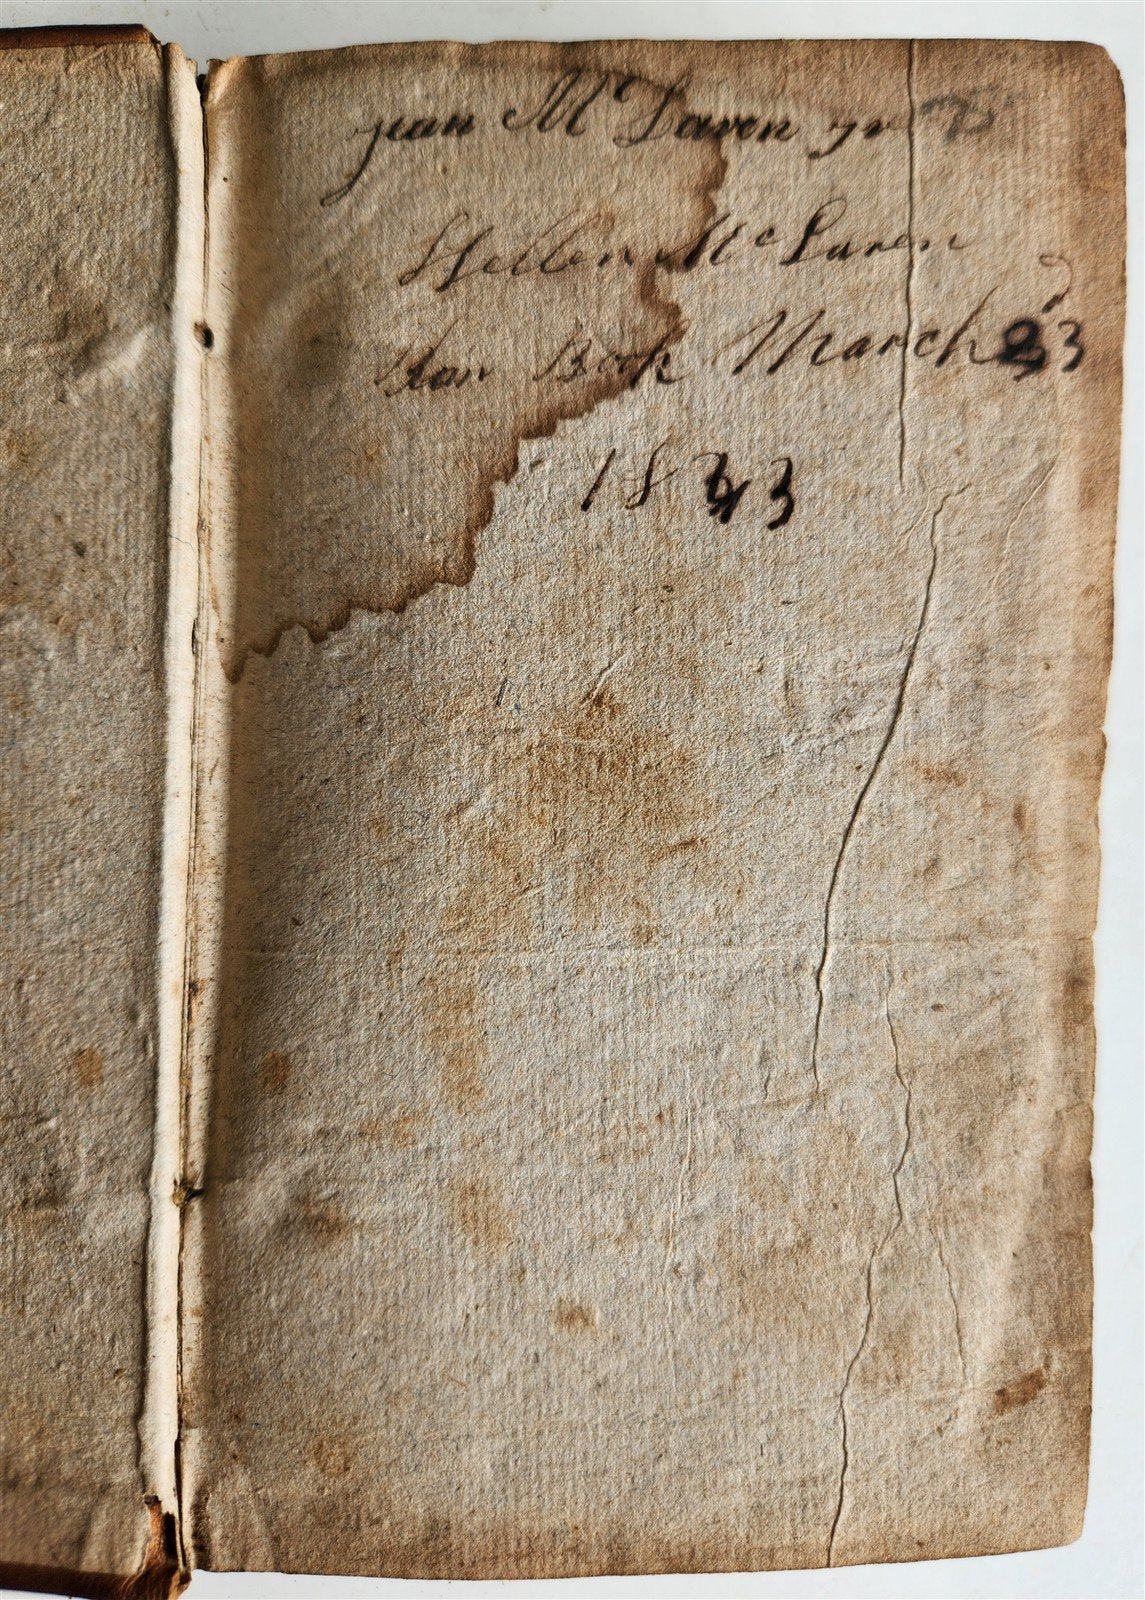 jean McLaren
Hellen McLaren
Book March 23
1843